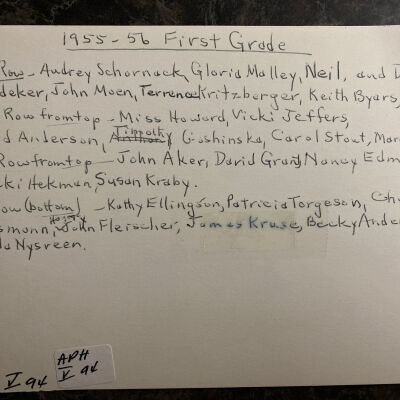 1955-56 First Grade
Row - Audrey Schornack, Gloria Malley, Neil, and D
deker, John Moen, Terrence Kritzberger, Keith Byars,
Row from top - Miss Howard, Vicki Jeffers,
d Anderson, Timothy Anthony Gushinska, Carol Stout, Mar
Row from top - John Aker, David Grang Nancy Edm
cki Hekman, Susan Kraby.
ow (bottom) - Kathy Ellingson, Patricia Torgeson, Ch
smann, John Fleischer, James Kruse, Becky Ande
da Nysveen.
V 94
APH
V 94